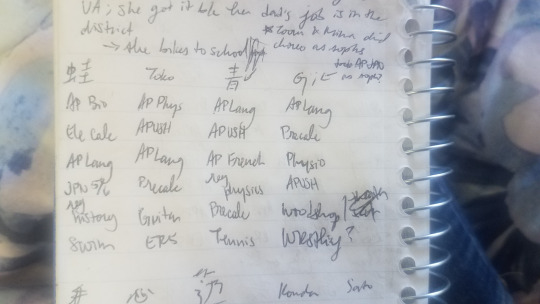 VA; she got it b/c her dad's job is in the
district
→ she bikes to school
* Zoom & Mina did
chorus as sophs
蛙 Toko 青
AP Bio AP Phys AP Lang AP Lang
Ele Calc APUSH APUSH Precalc
AP Lang AP Lang AP French Physio
JPN 5/6 Precalc reg physics APUSH
reg history Guitar Precalc Woodshop
Swim ERS Tennis Wrestling?
Kondo Sato